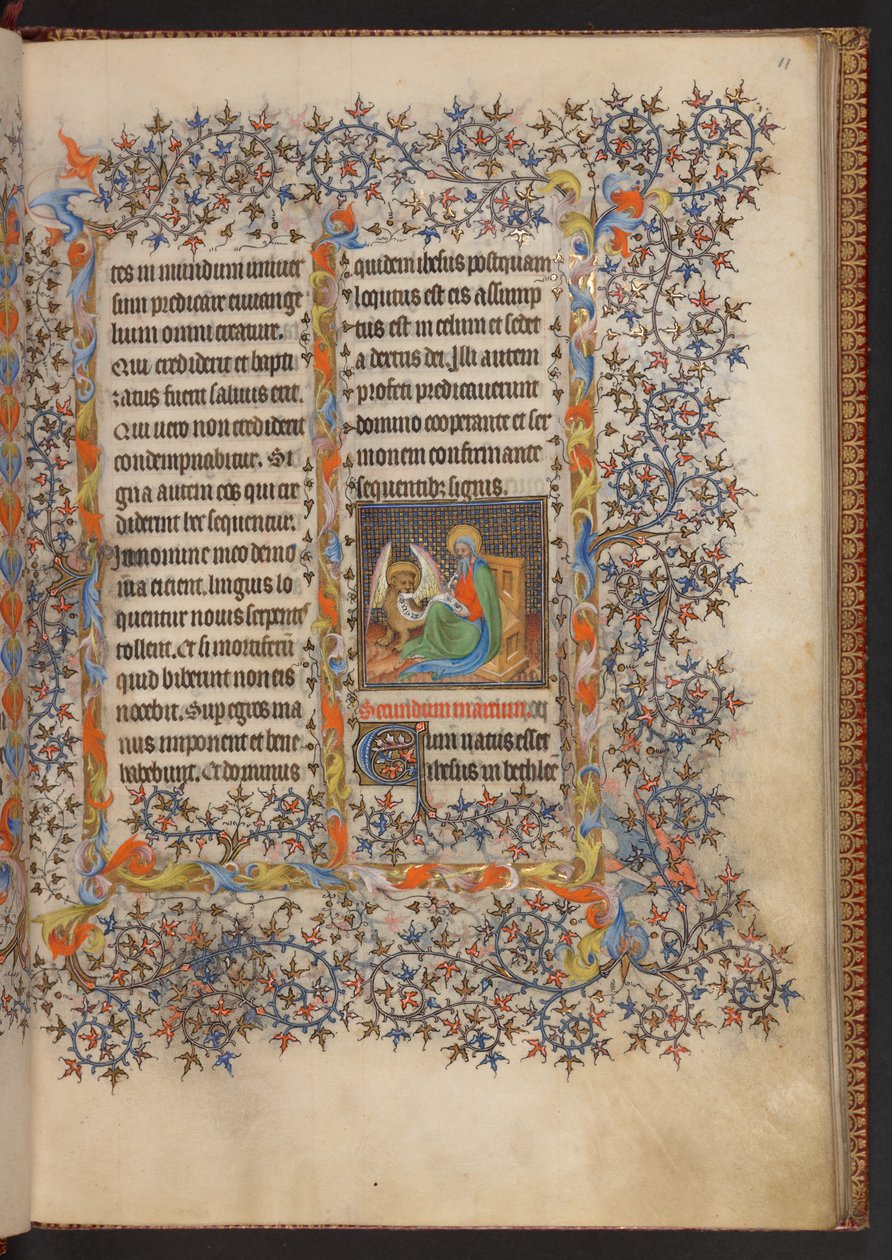 11
tes in mundum univer
sum predicate euuange
lium omni creature.
Qui crediderit et bapti
zatus fuerit saluus erit.
Qui uero non crediderit
condempnabitur. Si
gna autem eos qui cre
diderint hec sequentur.
In nomine meo demo
nia eicient. linguis lo
quentur nouis serpentes
tollent. Et si mortiferū
quid biberint non eis
nocebit. Sup egros ma
nus imponent et bene
habebunt. Et dominus
quidem ihesus postquam
loqutus est eis assump
tus est in celum et sedet
a dextris dei. Illi autem
profecti predicauerunt
domino cooperante et ser
monem confirmante
sequentibꝫ signis.
Secundum marcum.
Cum natus esset
ihesus in bethlee